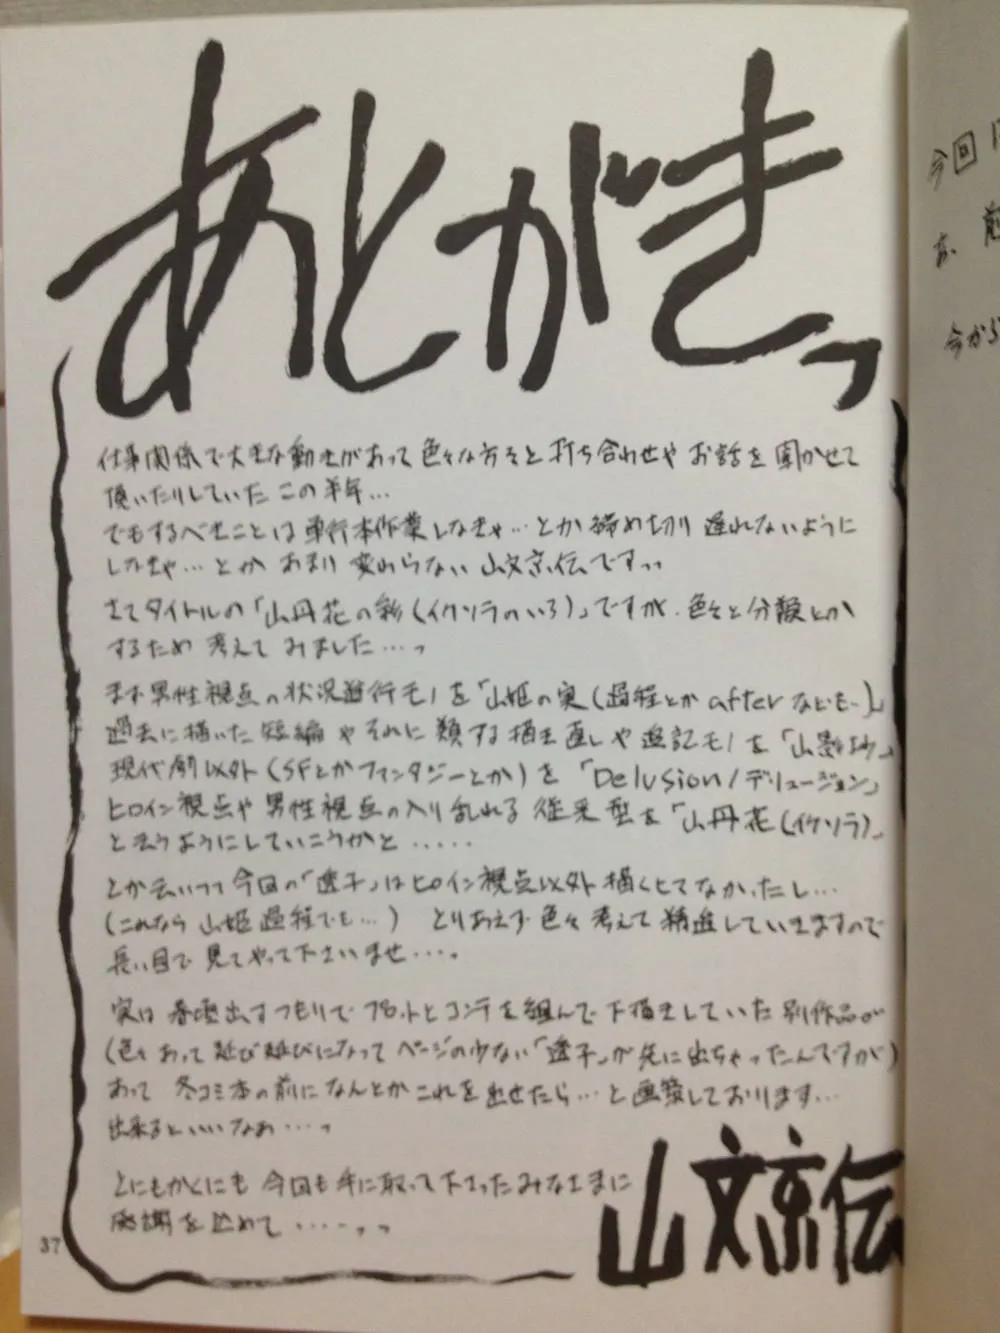 あとがきっ
仕事関係で大きな動きがあって色々な方々と打ち合わせやお話を聞かせて
頂いたりしていたこの半年…
でもするべきことは単行本作業しなきゃ…とか締め切り遅れないように
しなきゃ…とかあまり変わらない山文京伝ですっっ
さてタイトルの「山丹花の彩(イケソラのいろ)」ですが、色々と分類とか
するため考えてみました…っ
まず男性視点の状況進行モノを「山姫の実(過程とかafterなども…)」
過去に描いた短編やそれに類する描き直しや追記モノを「山影抄」
現代劇以外(SFとかファンタジーとか)を「Delusion/デリュージョン」
ヒロイン視点や男性視点の入り乱れる従来型を「山丹花(イケソラ)」
と云うようにしていこうかと.....
とか云いつつ今回の「透子」はヒロイン視点以外描くとてなかったし…
(これなら山姫過程でも…) とりあえず色々考えて精進していきますので
長い目で見てやって下さいませ….。
実は春頃出すつもりでプロットとコンテを組んで下描きしていた別作品が
(色々あって延び延びになってページの少ない「透子」が先に出ちゃったんですが)
あって 冬コミ本の前になんとかこれを出せたら…と画策しております…
出来るといいなあ…っ
とにもかくにも 今回も手に取って下さったみなさまに
感謝を込めて…..っっ
山文京伝
37
今回
今から